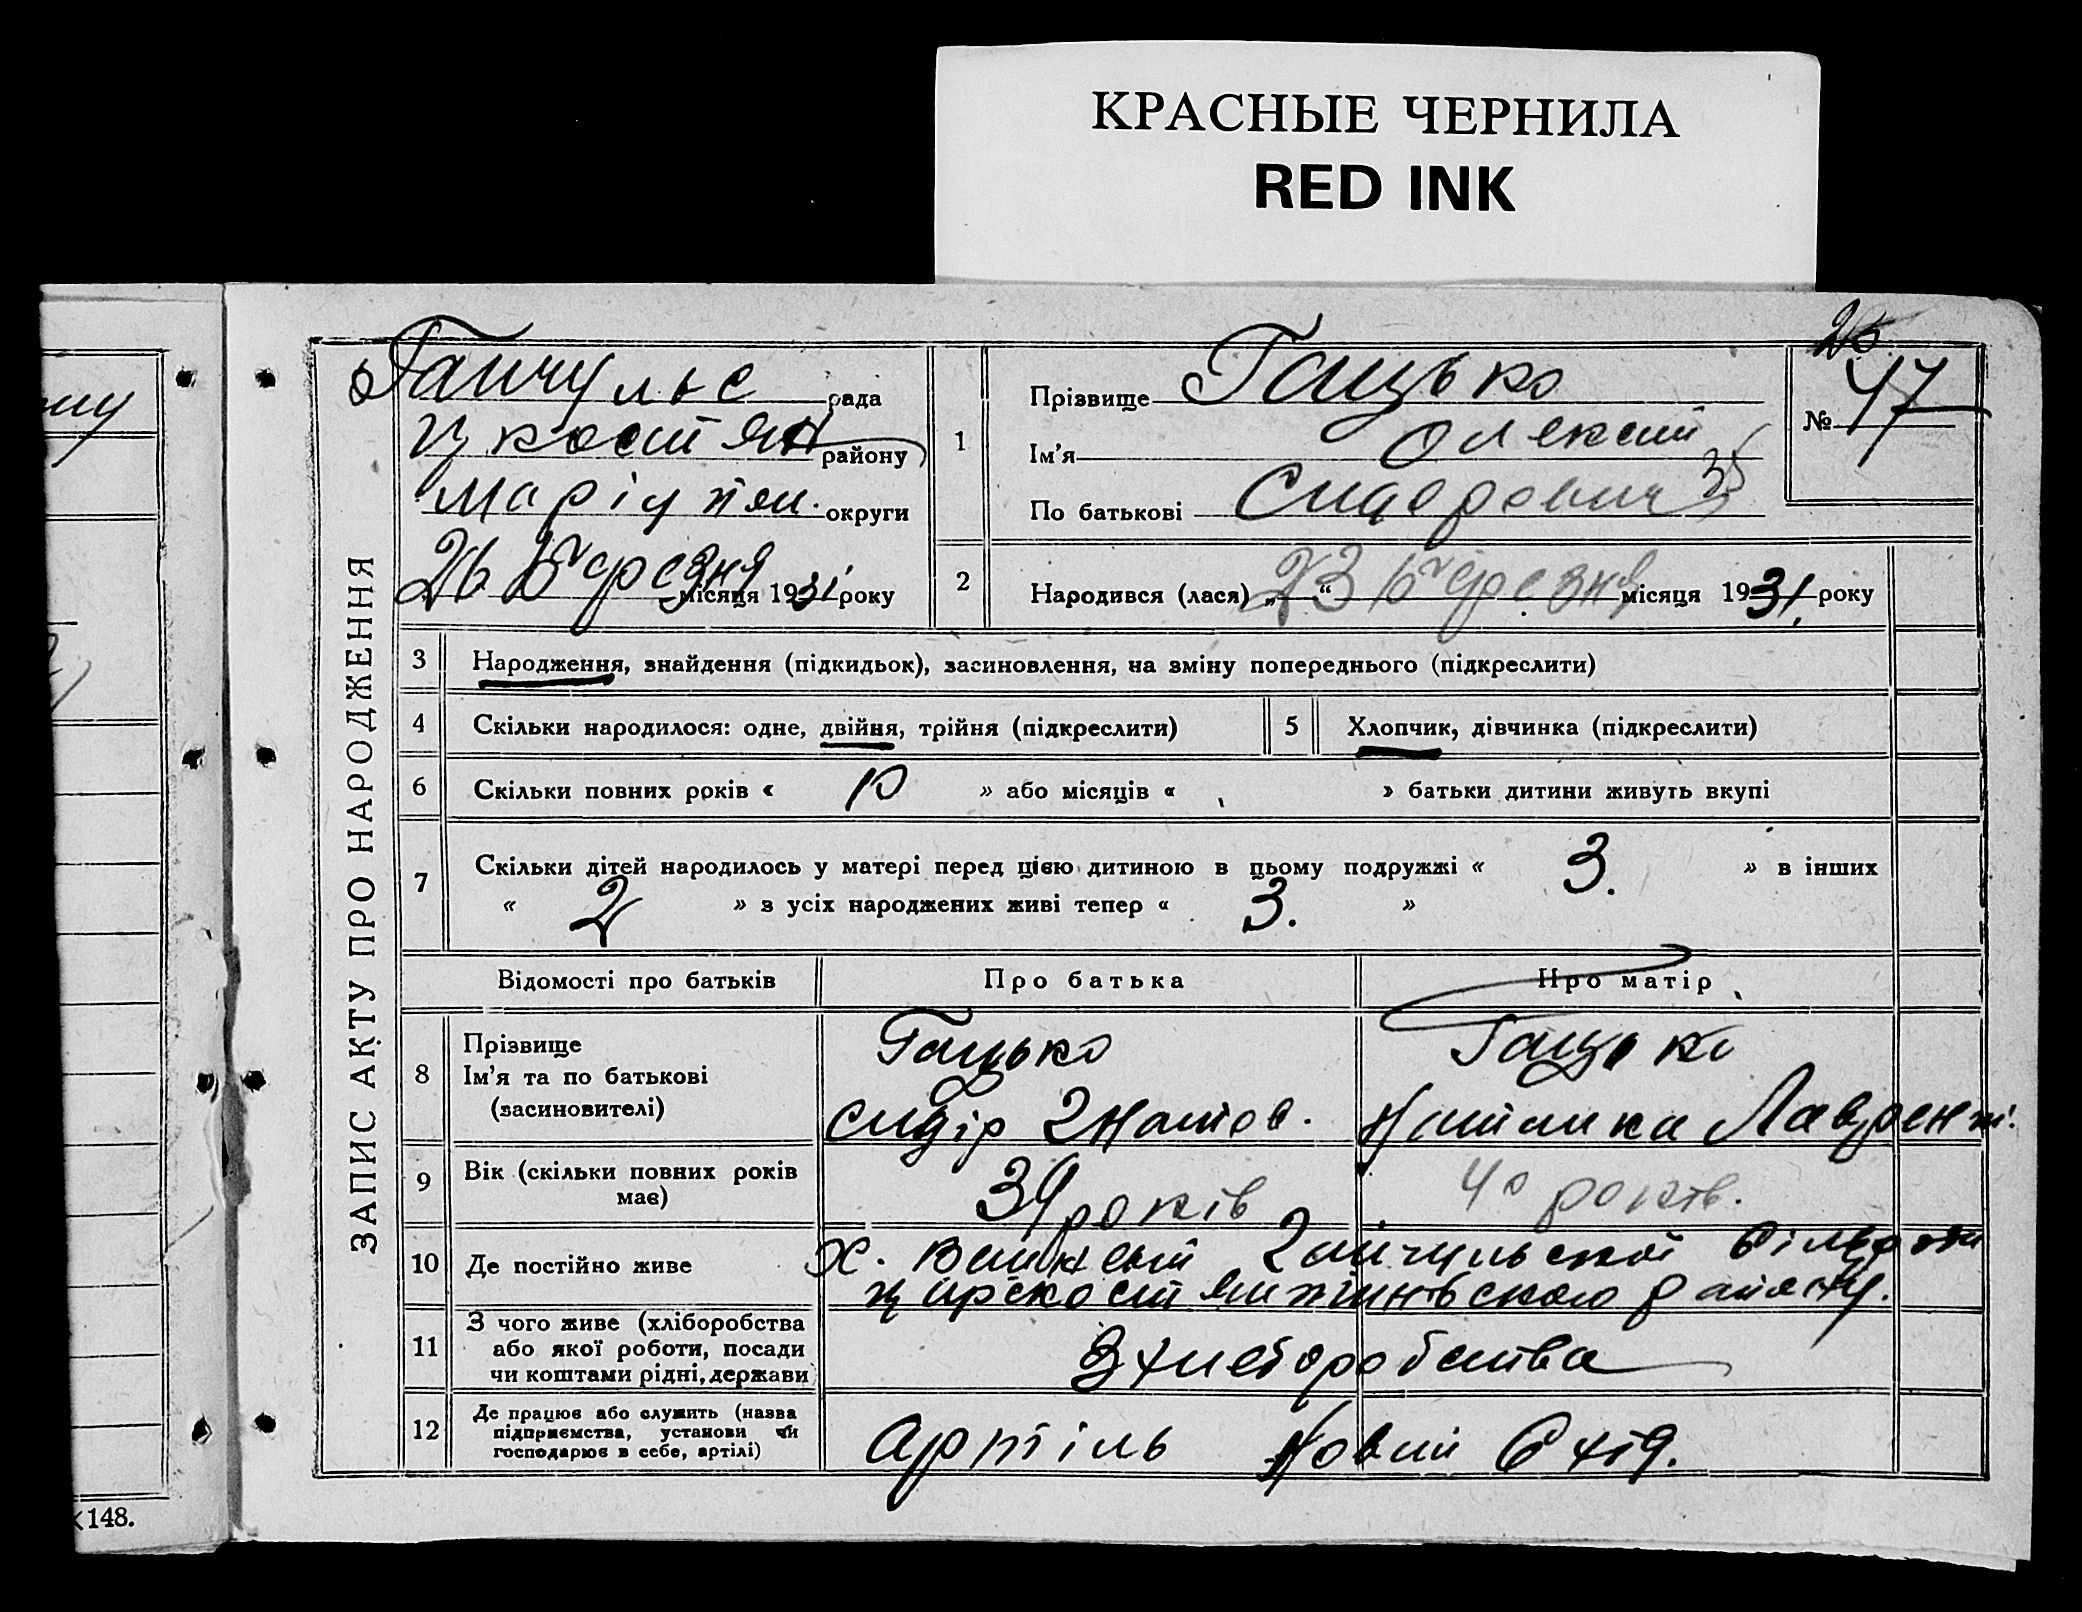 КРАСНЫЕ ЧЕРНИЛА
RED INK
ЗАПИС АКТУ ПРО НАРОДЖЕННЯ
Гайчульс рада
Цкостян району
Маріупол. округи
26 березня місяця 1931 року
1
Прізвище Гацько
Ім'я Олексій
По батькові Сидорович
35
№ 47
2
Народився (лася) „23“ березня місяця 1931 року
3 Народження, знайдення (підкидьок), засиновлення, на зміну попереднього (підкреслити)
4 Скільки народилося: одне, двійня, трійня (підкреслити)
5 Хлопчик, дівчинка (підкреслити)
6 Скільки повних років « 10 » або місяців « » батьки дитини живуть вкупі
7 Скільки дітей народилось у матері перед цією дитиною в цьому подружжі « 3. » в інших
« 2 » з усіх народжених живі тепер « 3. »
Відомості про батьків
Про батька
Про матір
8 Прізвище
Ім'я та по батькові
(засиновителі)
Гацько
Сидір Гнатов.
Гацько
Наталка Лаврент.
9 Вік (скільки повних років
має)
39 років
40 років.
10 Де постійно живе
Х. Гайчульської сільради
району.
11 З чого живе (хліборобства
або якої роботи, посади
чи коштами рідні, держави
З хліборобства
12 Де працює або служить (назва
підприємства, установи чи
господарює в себе, артілі)
Артіль Новий Схід.
148.